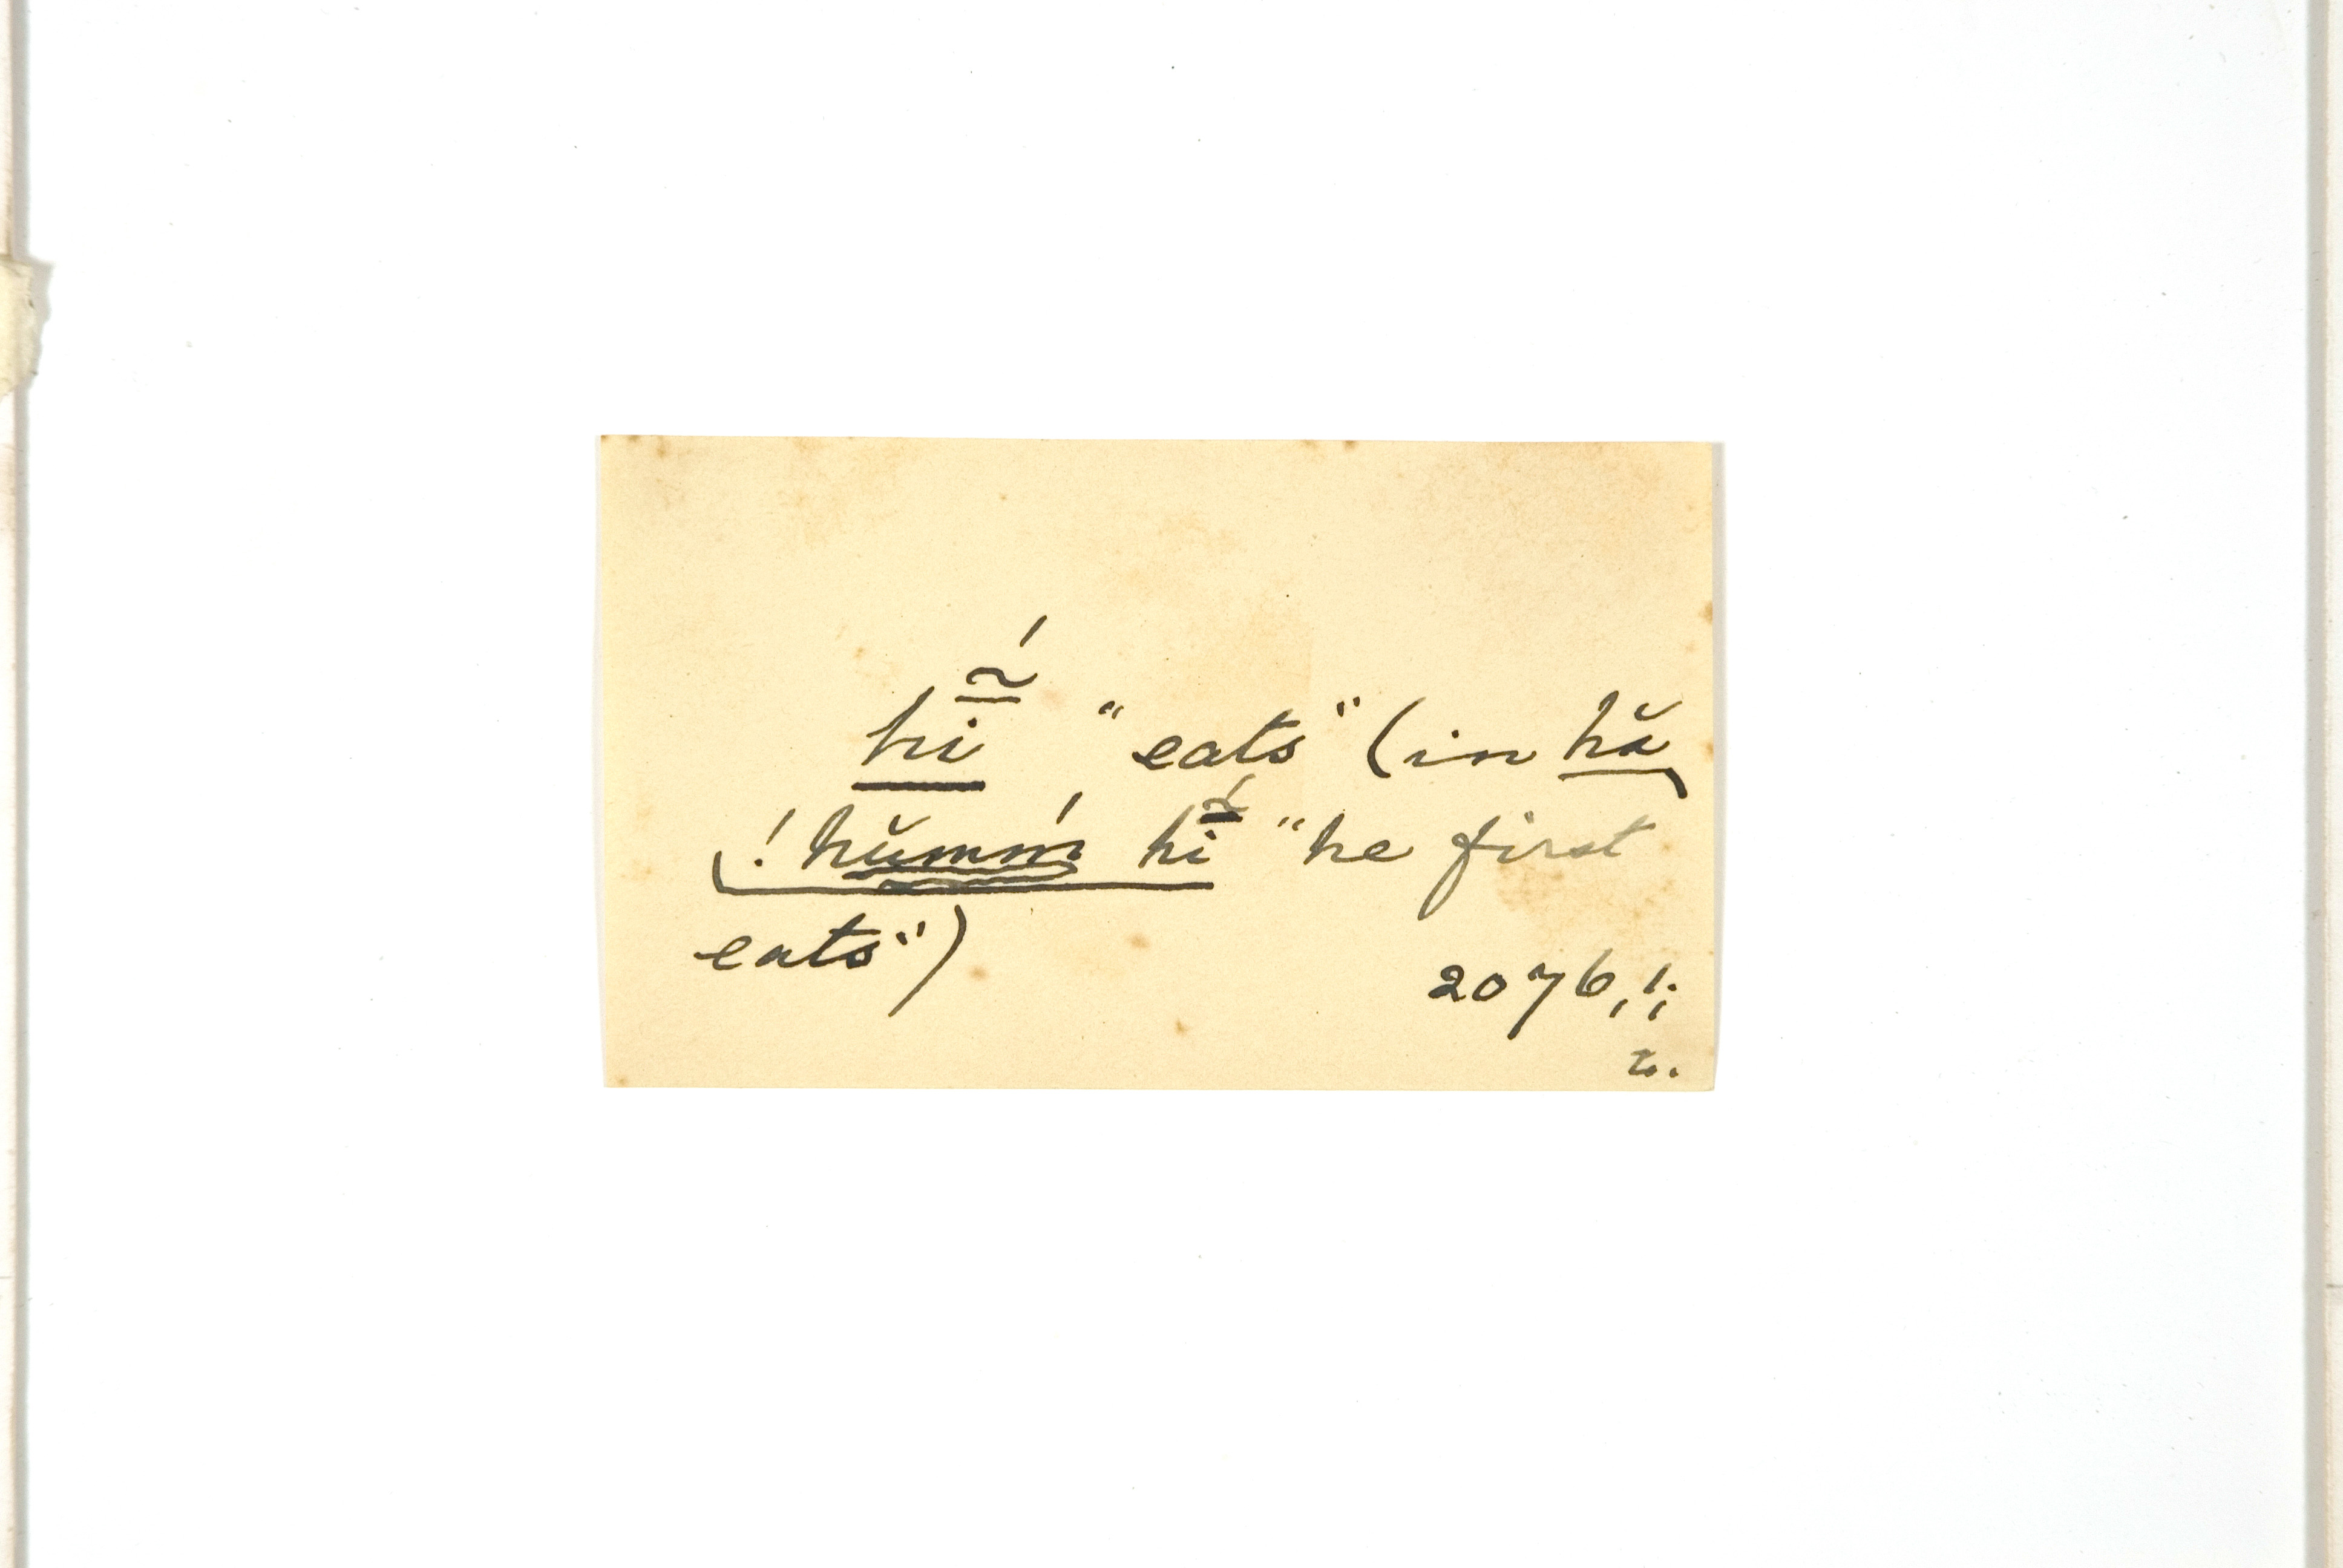 hī̃́ "eats" (in hă
!hŭmḿ hī̃́ "he first
eats")
2076, !;
2.